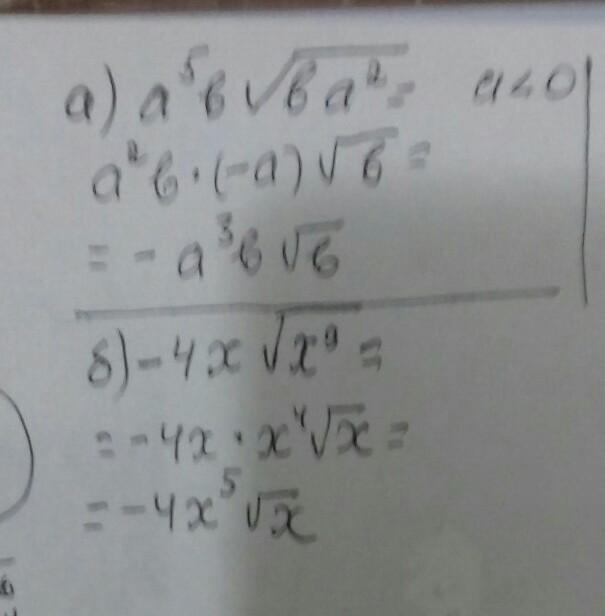 а) a⁵b√(ba²) = a<0
a²b·(-a)√b =
= -a³b√b
б) -4x√(x⁹) =
= -4x·x⁴√x =
= -4x⁵√x